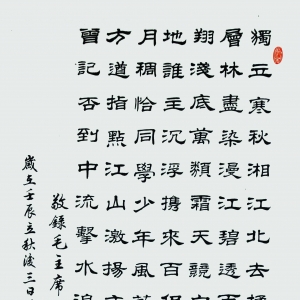 獨立寒秋湘江北去橘
層林盡染漫江碧透百
翔淺底萬類霜天競自
地誰主沉浮攜來百侶
月稠恰同學少年風華
方遒指點江山激揚文
曾記否到中流擊水浪
敬錄毛主席
歲在壬辰立秋後三日